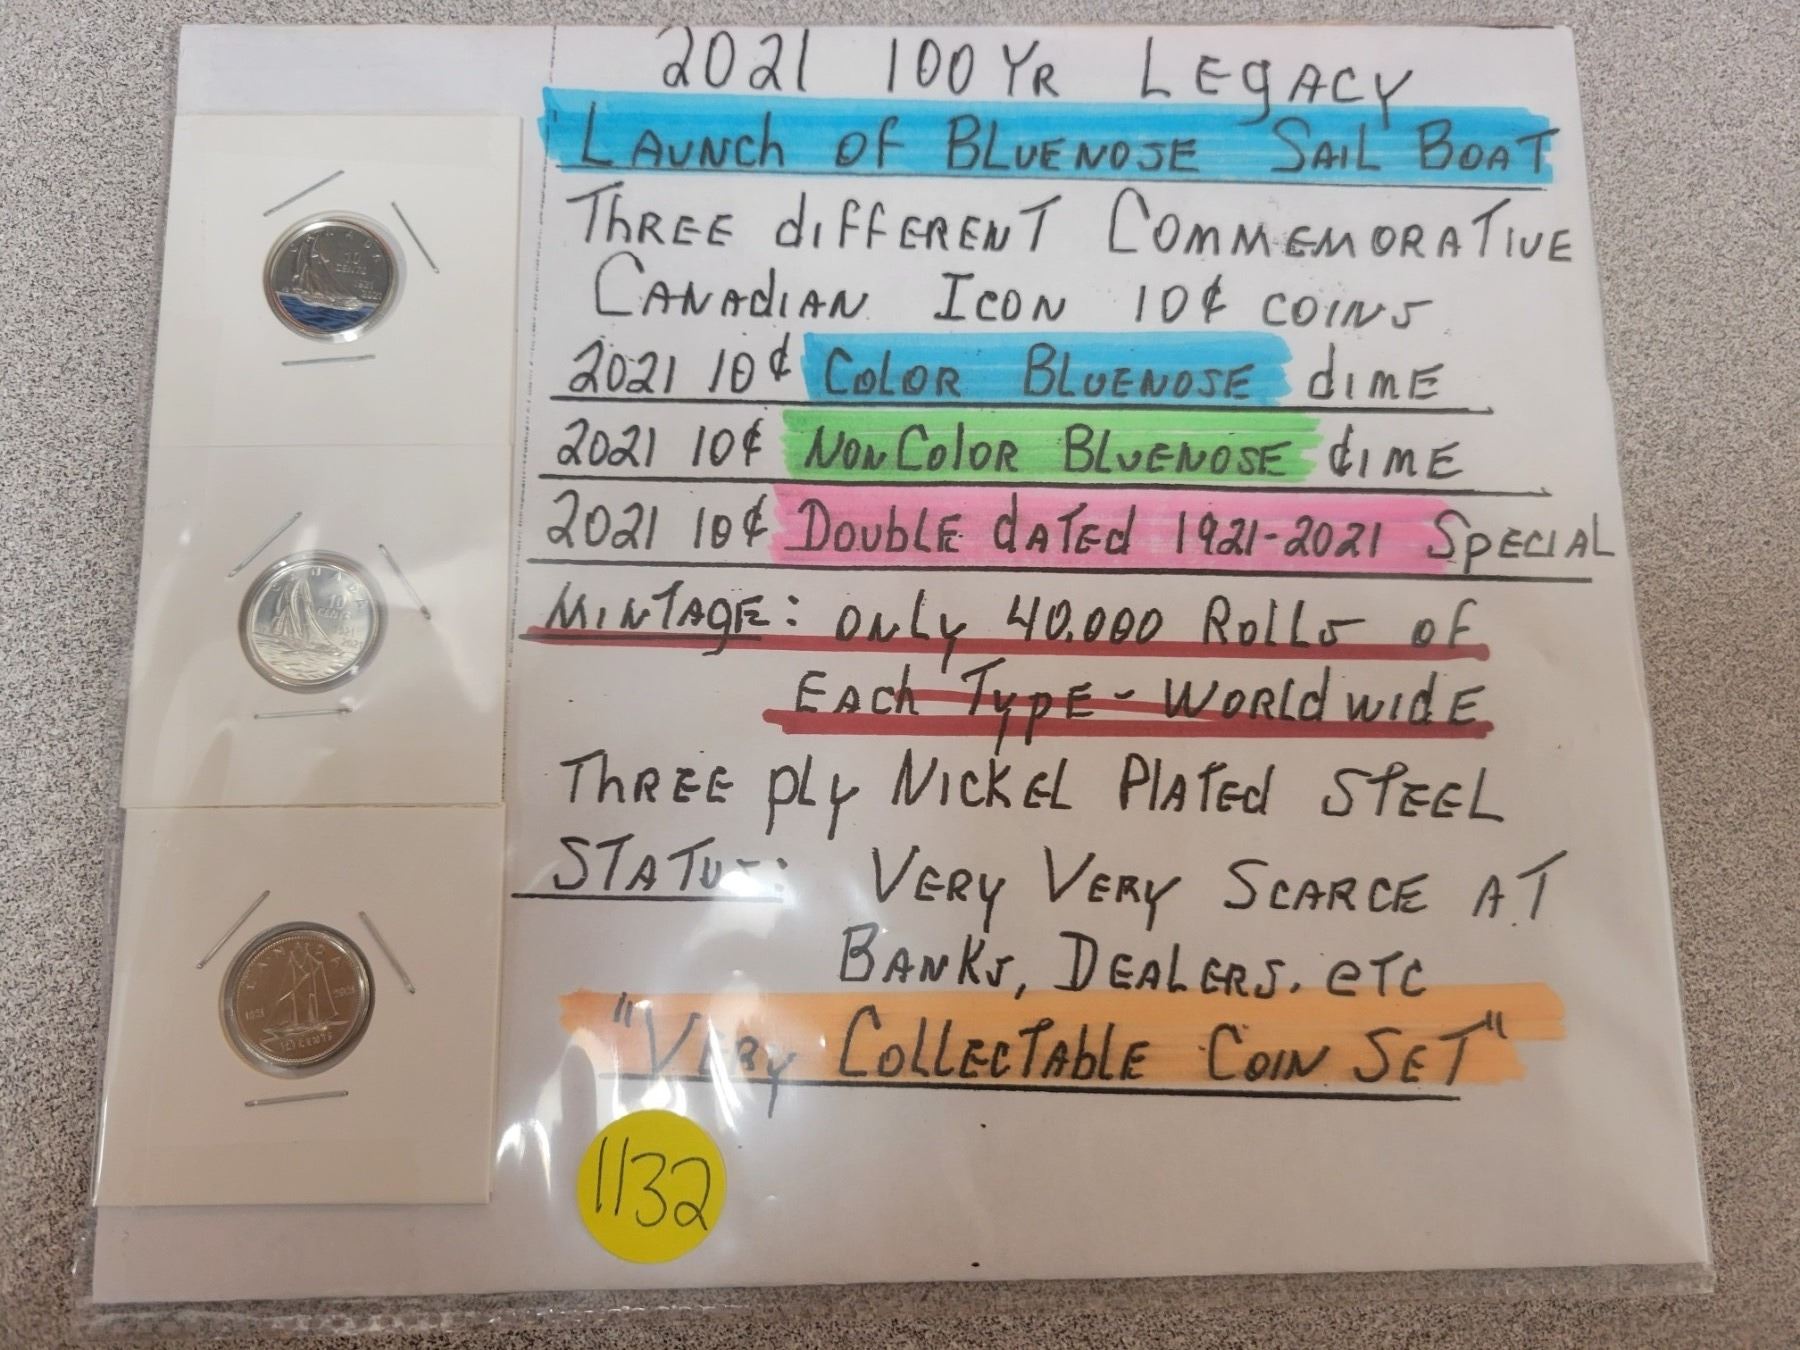 2021 100 YR LEGACY
LAUNCH OF BLUENOSE SAIL BOAT
THREE DIFFERENT COMMEMORATIVE
CANADIAN ICON 10¢ COINS
2021 10¢ COLOR BLUENOSE DIME
2021 10¢ NONCOLOR BLUENOSE DIME
2021 10¢ DOUBLE DATED 1921-2021 SPECIAL
MINTAGE: ONLY 40,000 ROLLS OF
EACH TYPE - WORLDWIDE
THREE PLY NICKEL PLATED STEEL
STATUS: VERY VERY SCARCE AT
BANKS, DEALERS. ETC
"VERY COLLECTABLE COIN SET"
1132
CANADA
10
CENTS
1921
2021
10
CENTS
CANADA
1921
2021
10 CENTS